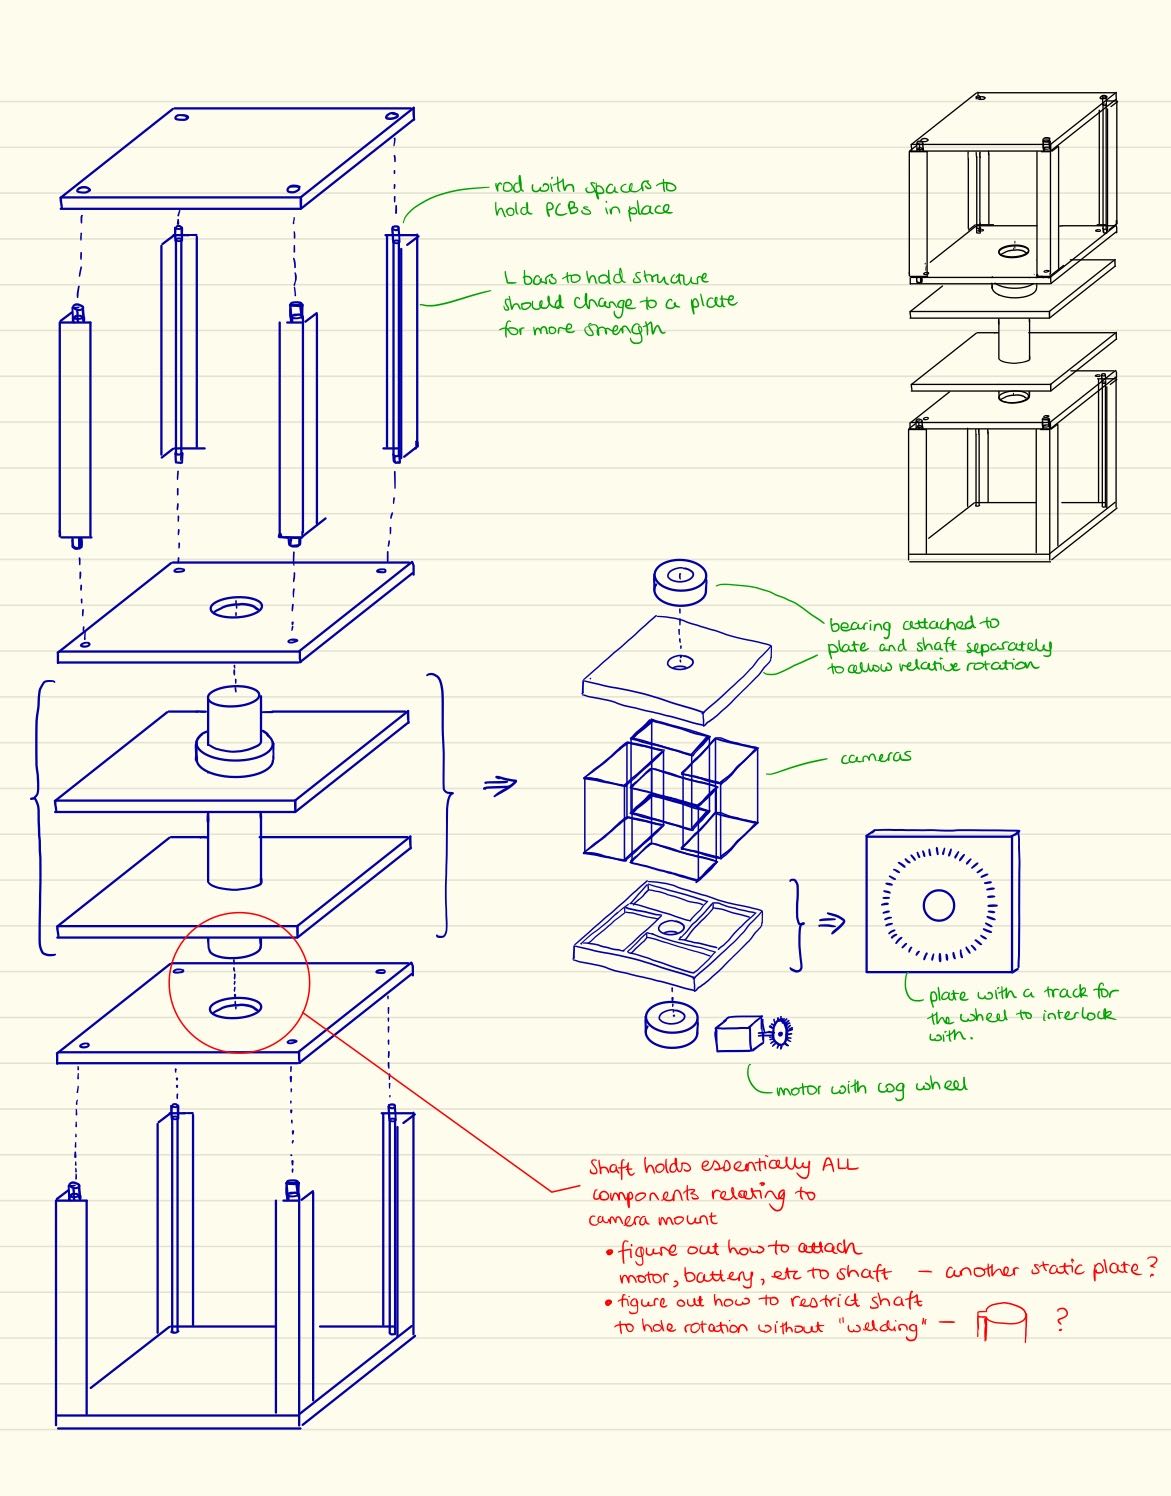 rod with spacers to
hold PCBs in place
L bars to hold structure
should change to a plate
for more strength
bearing attached to
plate and shaft separately
to allow relative rotation
cameras
plate with a track for
the wheel to interlock
with.
motor with cog wheel
Shaft holds essentially ALL
components relating to
camera mount
• figure out how to attach
motor, battery, etc to shaft – another static plate?
• figure out how to restrict shaft
to hole rotation without "welding" – ?